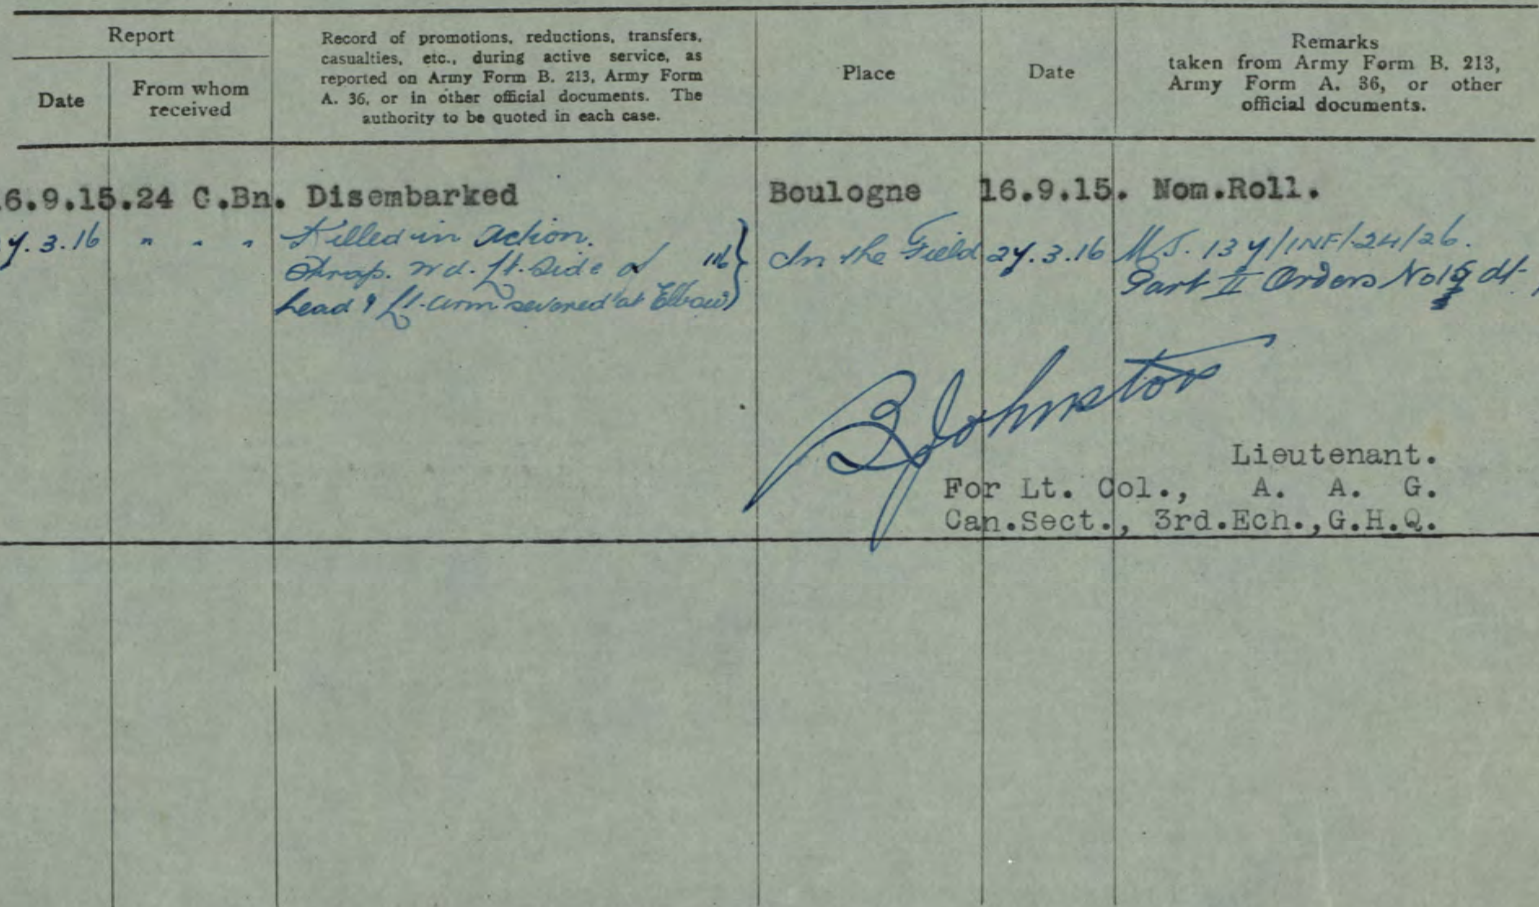 Report
Date
From whom
received
Record of promotions, reductions, transfers,
casualties, etc., during active service, as
reported on Army Form B. 213, Army Form
A. 36, or in other official documents. The
authority to be quoted in each case.
Place
Date
Remarks
taken from Army Form B. 213,
Army Form A. 36, or other
official documents.
6.9.15.24 C.Bn. Disembarked Boulogne 16.9.15. Nom.Roll.
7.3.16 " " " Killed in Action. In the Field 27.3.16 137/INF/24/26.
Shrap. wd. lft. Side of
head & lft. arm severed at Elbow) Part II Orders No 15 dt
B Johnston
Lieutenant.
For Lt. Col., A. A. G.
Can.Sect., 3rd.Ech.,G.H.Q.